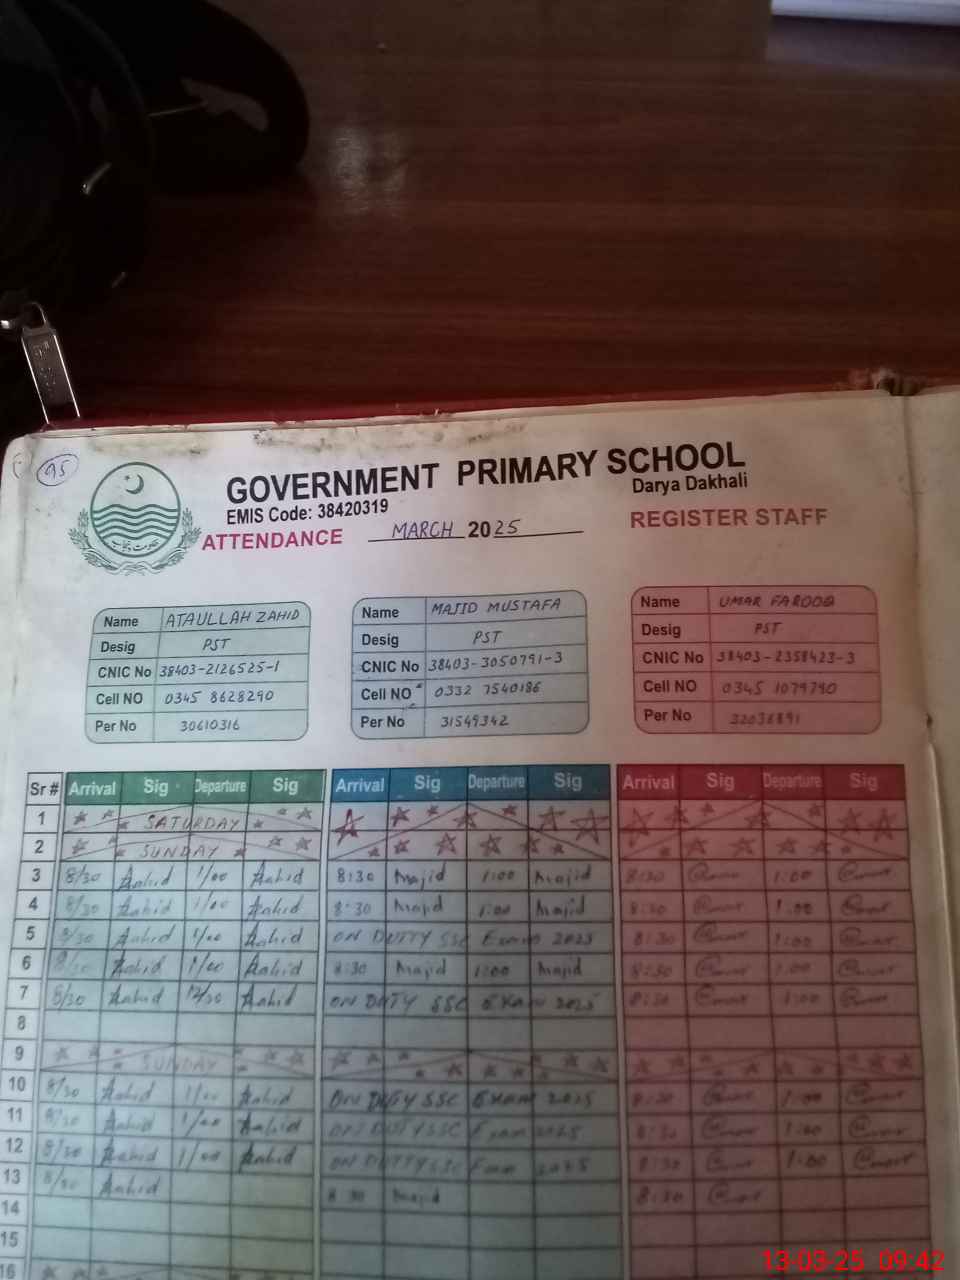 95
GOVERNMENT PRIMARY SCHOOL
Darya Dakhali
EMIS Code: 38420319
ATTENDANCE MARCH 2025 REGISTER STAFF
Name ATAULLAH ZAHID
Desig PST
CNIC No 38403-2126525-1
Cell NO 0345 8628290
Per No 30610316
Name MAJID MUSTAFA
Desig PST
CNIC No 38403-3050791-3
Cell NO 0332 7540186
Per No 31549342
Name UMAR FAROOQ
Desig PST
CNIC No 38403-2358423-3
Cell NO 0345 1079790
Per No 32036891
Sr # Arrival Sig Departure Sig Arrival Sig Departure Sig Arrival Sig Departure Sig
1 SATURDAY
2 SUNDAY
3 8/30 Zahid 1/00 Zahid 8:30 Majid 1:00 Majid 8:30 1:00
4 8/30 Zahid 1/00 Zahid 8:30 Majid 1:00 Majid 8:30 1:00
5 8/30 Zahid 1/00 Zahid ON DUTTY SSC Exam 2025 8:30 1:00
6 8/30 Zahid 1/00 Zahid 8:30 Majid 1:00 Majid 8:30 1:00
7 8/30 Zahid 12/30 Zahid ON DUTY SSC EXAM 2025 8:30 1:00
8
9 SUNDAY
10 8/30 Zahid 1/00 Zahid ON DUTY SSC EXAM 2025 8:30 1:00
11 8/30 Zahid 1/00 Zahid ON DUTY SSC Exam 2025 8:30 1:00
12 8/30 Zahid 1/00 Zahid ON DUTTY SSC Exam 2025 8:30 1:00
13 8/30 Zahid 8:30 Majid 8:30
14
15
16
13-03-25 09:42